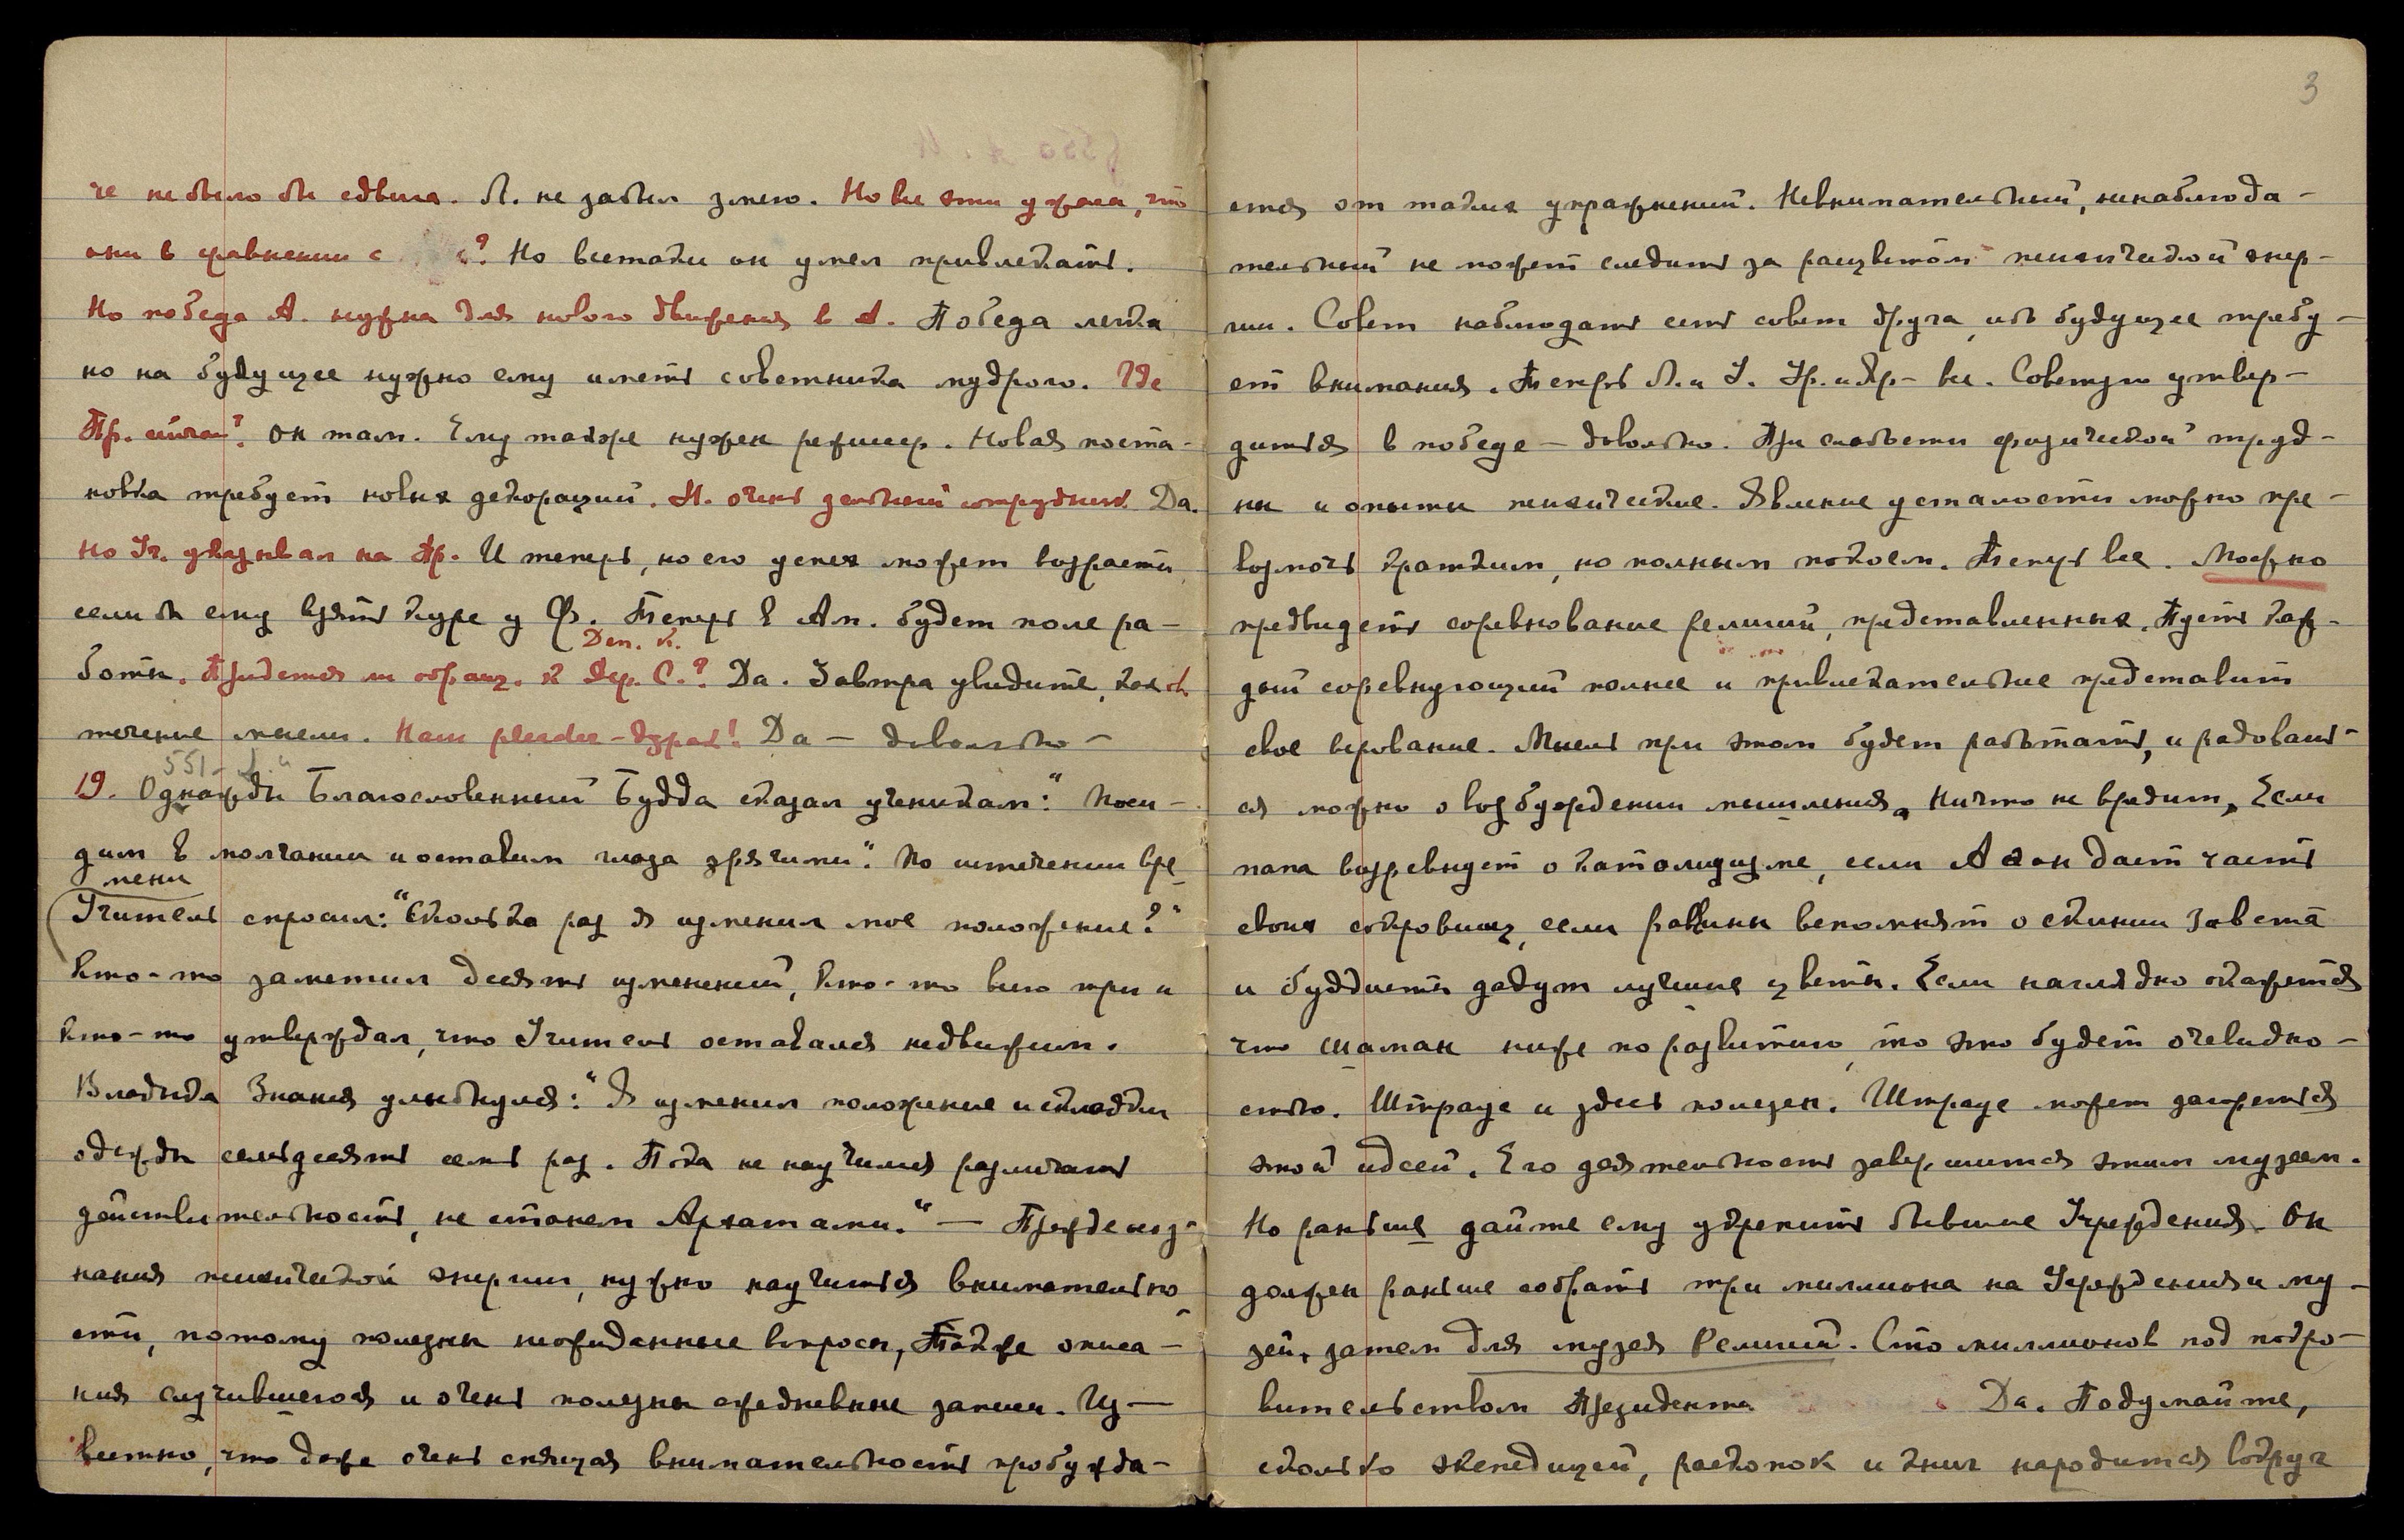 че не было бы сдвига. Л. не забыл змею. Но все эти ужаса, что
они в сравнении с ? Но всетаки он умел привлекать.
Но победа А. нужна для нового движения в А. Победа легка
но на будущее нужно ему иметь советника мудрого. Где
Пр. сейчас? Он там. Ему также нужен режиссер. Новая поста-
новка требует новых декораций. Н. очень дельный сотрудник. Да.
Но Уч. указывал на Пр. И теперь, но его успех может возрасти
если бы ему взять курс у Ф. Теперь в Ам. будет поле ра-
Деп. К.
боты. Придется ли обращ. к Гр. С.? Да. Завтра увидите, как
течение мысли. Наш pleader - дурак! Да — довольно —
551-А.
19. Однажды Благословенный Будда сказал ученикам: "Поси-
дим в молчании и оставим глаза зрячими". По истечении вре-
мени
Учитель спросил: "Сколько раз я изменил мое положение?"
Кто-то заметил десять изменений, кто-то всего три и
кто-то утверждал, что Учитель оставался недвижим.
Владыка Знания улыбнулся: "Я изменил положение и складки
одежды семьдесять семь раз. Пока не научимся различать
действительность, не станем Архатами." — Прежде поз-
нания психической энергии, нужно научиться внимательно-
сти, потому полезны неожиданные вопросы, Также описа-
ния случившегося и очень полезны ежедневные записи. Из-
вестно, что даже очень спящая внимательность пробужда-
3
ется от таких упражнений. Невнимательный, ненаблюда-
тельный не может следить за расцветом психической энер-
гии. Совет наблюдать есть совет друга, ибо будущее требу-
ет внимания. Теперь Л. и У. Ур. и Яр. - вы. Советую утвер-
диться в победе — довольно. При слабости физической труд-
ны и опыты психические. Явление усталости можно пре-
возмочь кратким, но полным покоем. Теперь все. Можно
предвидеть соревнование религий, представленных. Пусть каж-
дый соревнующий полнее и привлекательнее представит
свое верование. Мысль при этом будет работать, и радовать-
ся можно о возбуждении мышления. Ничто не вредит, Если
папа возревнует о католицизме, если Афон даст часть
своих сокровищ, если раввины вспомнят о скинии Завета
и буддисты дадут лучшие цветы. Если наглядно окажется
что шаман ниже по развитию, то это будет очевидно-
стью. Штраус и здесь полезен. Штраус может загореться
этой идеей. Его деятельность завершится этим музеем.
Но раньше дайте ему укрепить бывшие Учреждения. Он
должен раньше собрать три миллиона на Учреждения и му-
зей, затем для музея Религий. Сто миллионов под покро-
вительством Президента Да. Подумайте,
сколько экспедиций, раскопок и книг народится вокруг